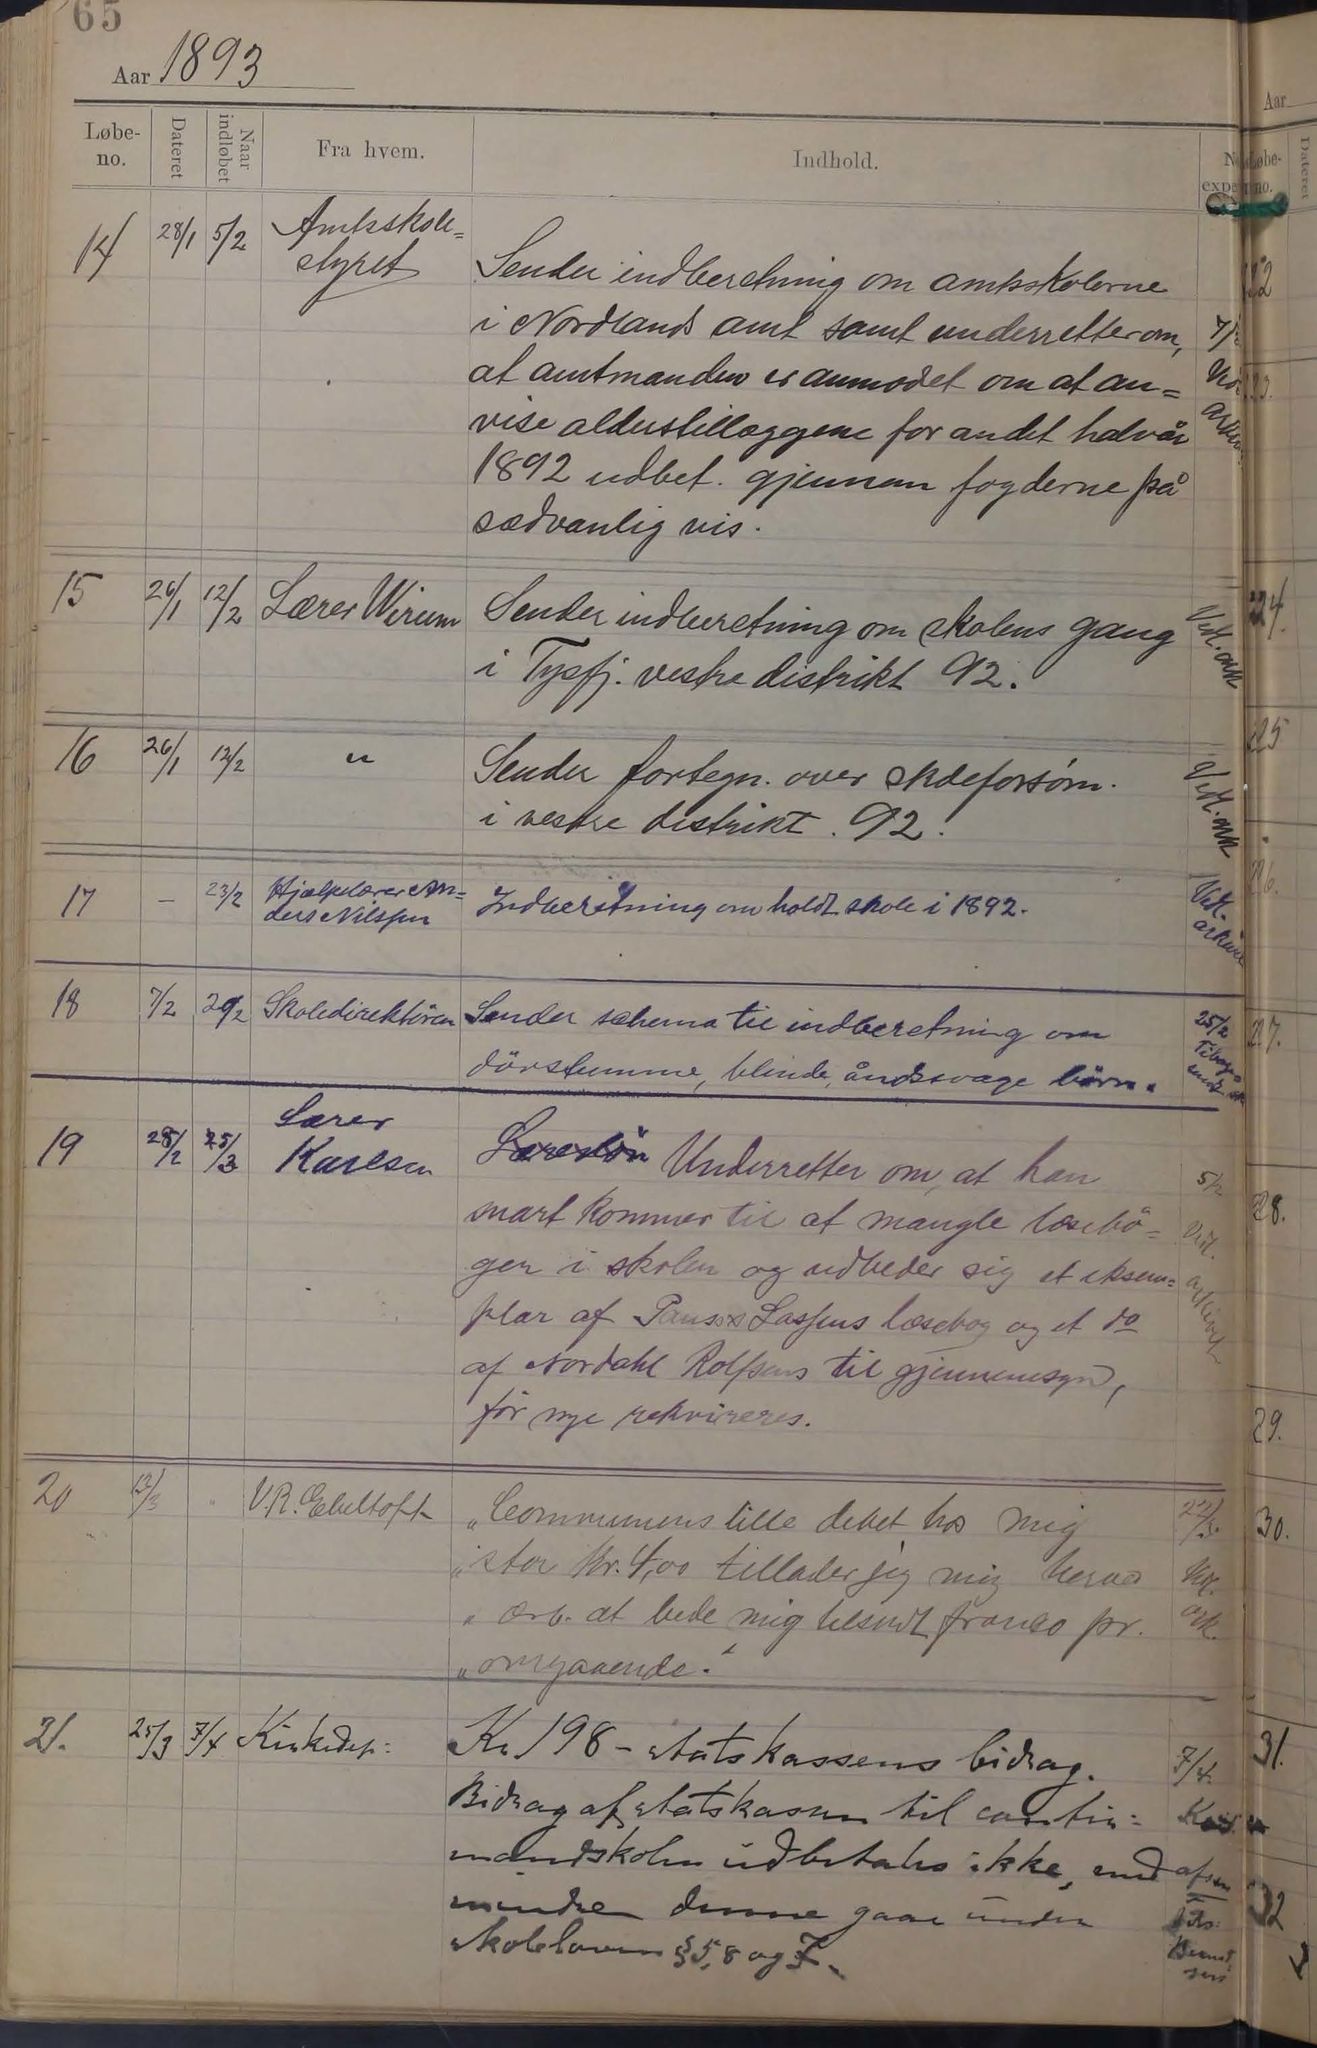 65
Aar 1893
Løbe-no. Dateret Naar indløbet Fra hvem. Indhold.
14 28/1 5/2 Amtsskole=
styret
Sender indberetning om amtsskolerne
i Nordlands amt samt underretter om,
at amtmanden er anmodet om at an=
vise alderstillæggene for andet halvår
1892 udbet. gjennem fogderne på
sædvanlig vis.
15 26/1 12/2 Lærer Wirum Sender indberetning om skolens gang
i Tysfj. vestre distrikt 92.
Vedt. ark
16 26/1 12/2 " Sender fortegn. over skoleforsøm.
i vestre distrikt. 92.
Vedt. ark
17 - 23/2 Hjælpelærer An=
ders Nilssen
Indberetning om holdt skole i 1892.
Vedt.
arkive
18 7/2 Skoledirektören Sender schema til indberetning om
dövstumme, blinde, åndssvage börn.
25/2
19 28/2 Lærer
Karlsen
Underretter om, at han
snart kommer til at mangle læsebö=
ger i skolen og udbeder sig et eksem=
plar af Pauss & Lassens læsebog og et do
af Nordahl Rolfsens til gjennemsyn,
för nye rekvireres.
20 V.R. Ebeltoft
"Communens lille debet hos mig
"stor Kr. 4,00 tillader jeg mig herved
" ærb. at bede mig tilsendt franco pr.
"omgaaende."
Vedt.
ark.
21. 25/3 7/4 Kirkedep:
Kr 198 - statskassens bidrag.
Bidrag af statskassen til
udbetales ikke, med
mindre denne gaar under
skoleloven § 5, 8 og
7/4
Aar
Dateret
29.
30.
31.